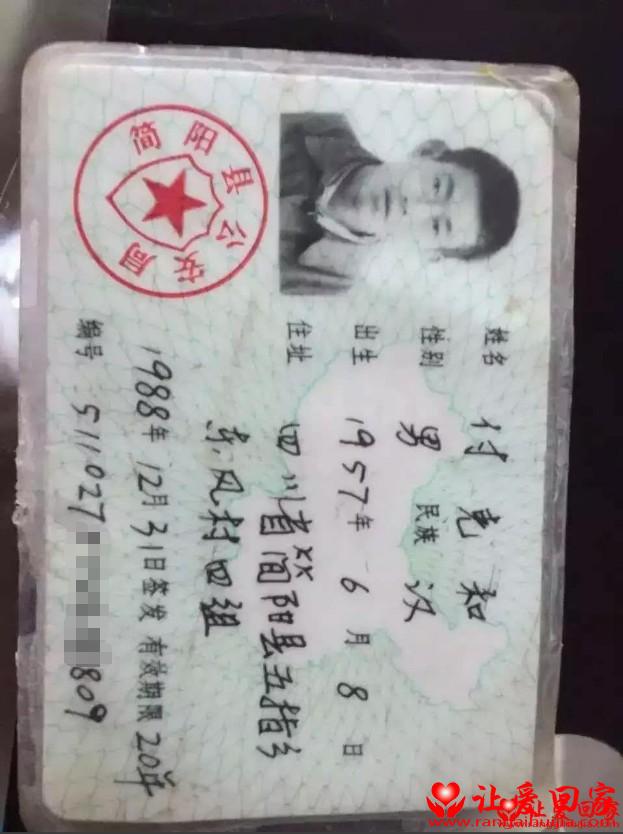 姓名 付克和
性别 男 民族 汉
出生 1957年 6月 8日
住址 四川省简阳县五指乡
东风村四组
1988年12月31日签发 有效期限20年
编号 511027 1809
简阳县公安局
让爱回家